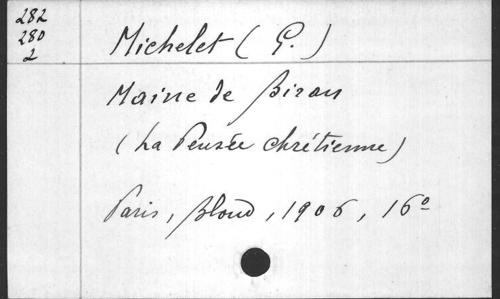 282
280
2
Michelet (G.)
Maine de Biran
(La Pensée chrétienne)
Paris, Bloud, 1906, 16º